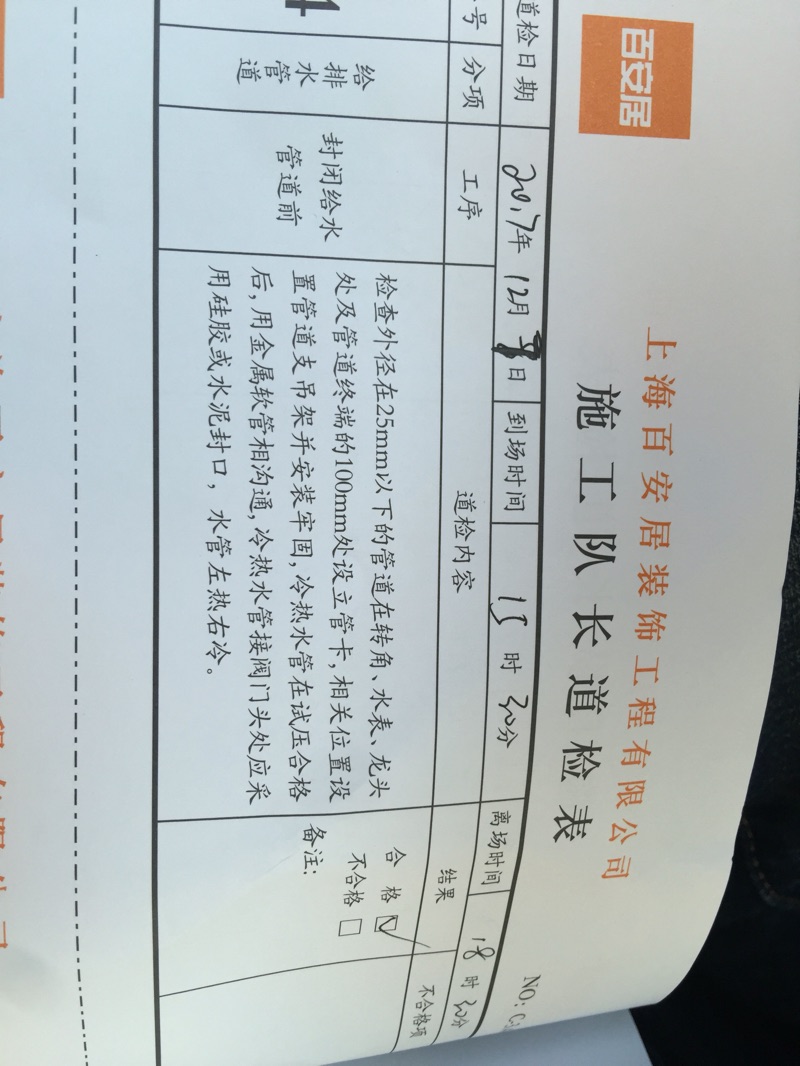 百安居
上海百安居装饰工程有限公司
施工队长道检表
NO:
道检日期 2017年 12月 日 到场时间 15时 20分 离场时间 18时 20分
号 分项 工序 道检内容 结果 不合格项
4
给排水管道
封闭给水
管道前
检查外径在25mm以下的管道在转角、水表、龙头
处及管道终端的100mm处设立管卡,相关位置设
置管道支吊架并安装牢固,冷热水管在试压合格
后,用金属软管相沟通,冷热水管接阀门头处应采
用硅胶或水泥封口,水管左热右冷。
合格 ☑
不合格 □
备注: